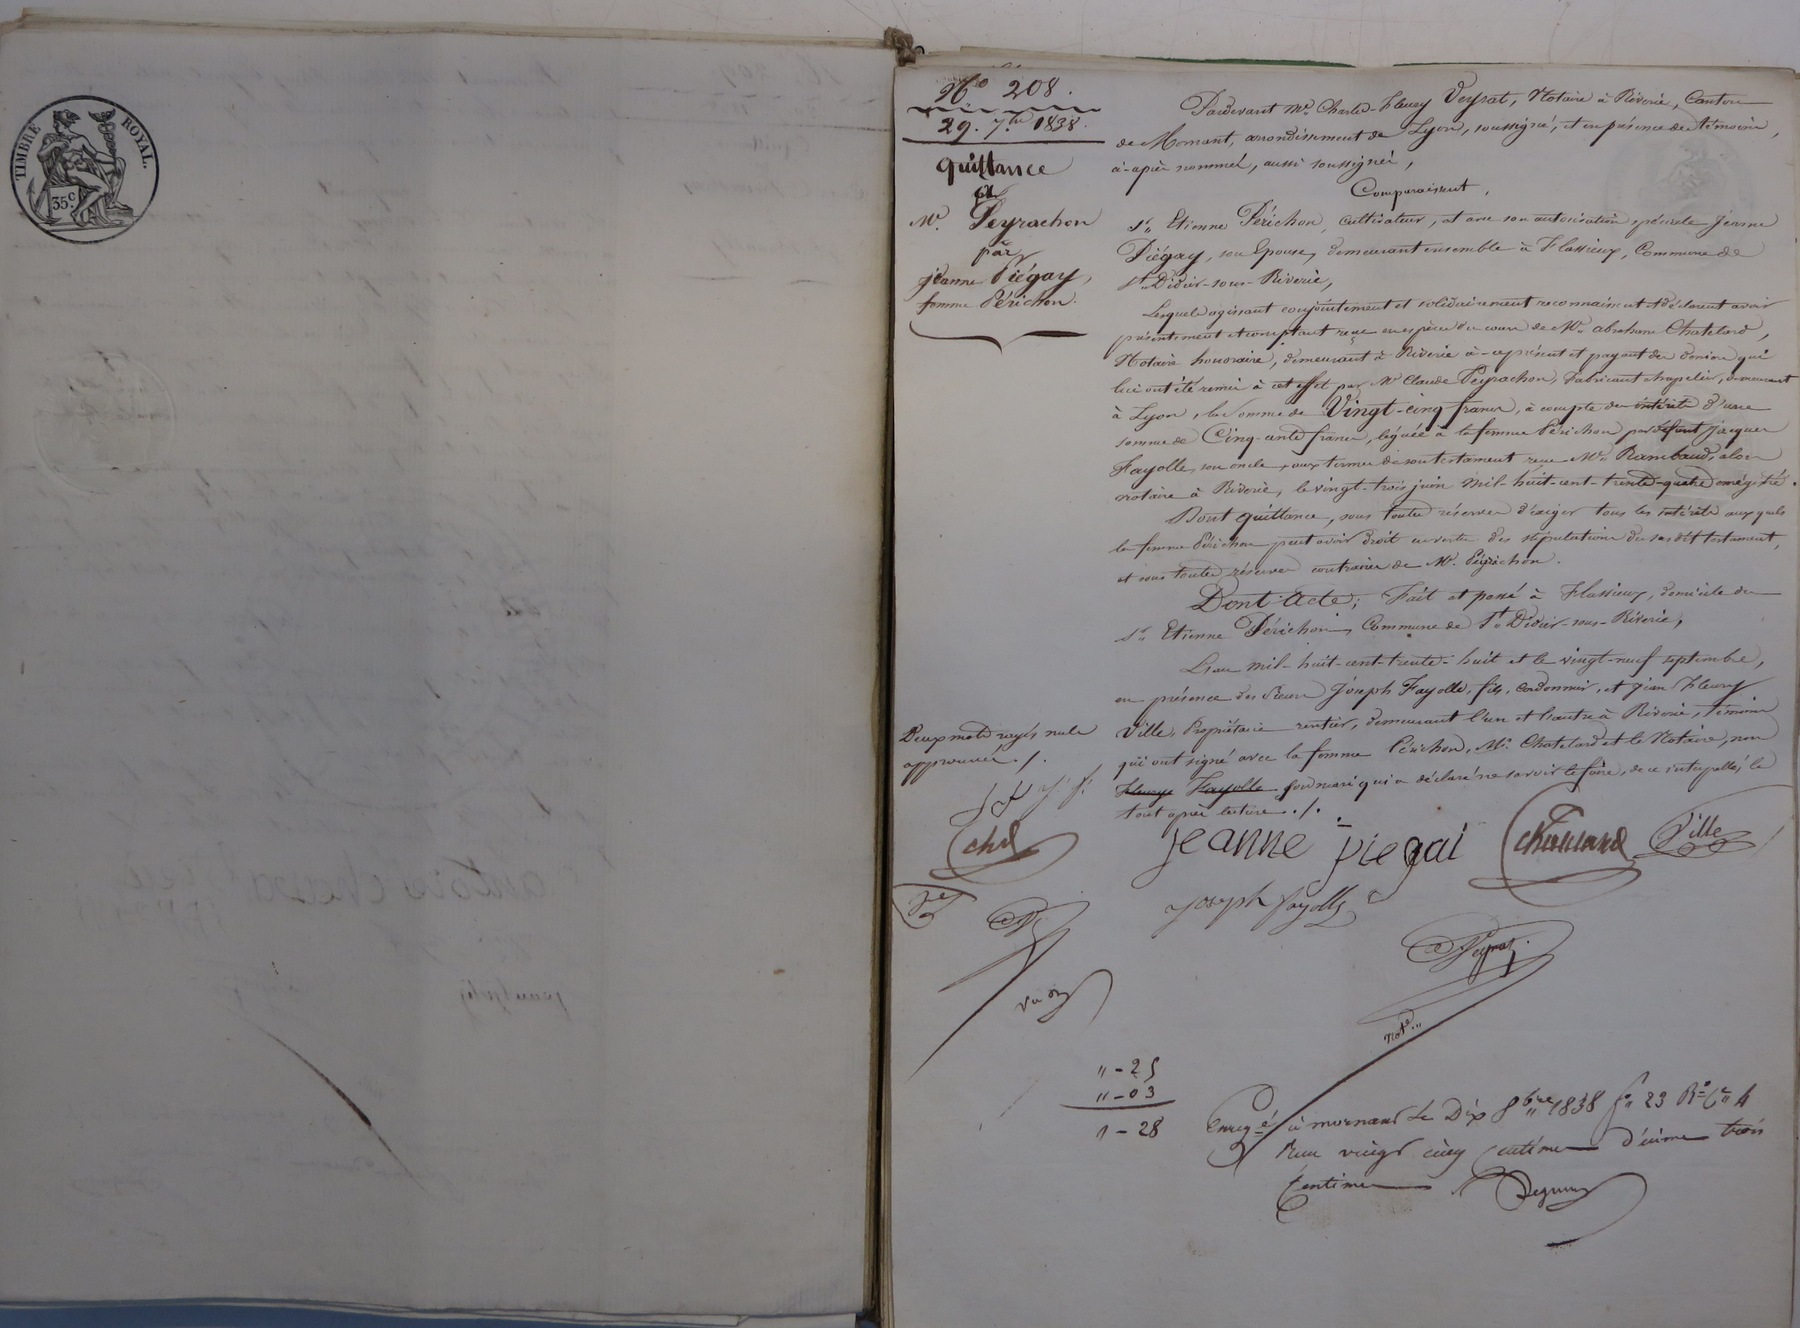 TIMBRE ROYAL.
35c.
No 208.
29. 7bre 1838.
quittance
à
Mr. Peyrachon
par
jeanne Piégay,
femme Périchon.
Pardevant Me Charles-Fleury Veyrat, Notaire à Riverie, Canton
de Mornant, arrondissement de Lyon, soussigné, et en présence des témoins,
ci-après nommés, aussi soussignés,
Comparaissent,
Sr. Etienne Périchon, cultivateur, et avec son autorisation spéciale Jeanne
Piégay, son Epouse, demeurant ensemble à Flassieux, Commune de
St. Didier-sous-Riverie,
Lesquels agissant conjointement et solidairement reconnaissent et déclarent avoir
présentement et comptant reçu en espèces du cours de Me. abraham Chatelard,
Notaire honoraire, demeurant à Riverie à-ce présent et payant des deniers qui
lui ont été remis à cet effet par Mr Claude Peyrachon, fabricant chapelier, demeurant
à Lyon, la Somme de Vingt-cinq francs, à compte des intérêts d'une
somme de Cinq-cents francs, léguée à la femme Périchon par défunt jacques
Fayolle, son oncle, aux termes de son testament reçu Me. Rambaud, alors
notaire à Riverie, le vingt-trois juin mil-huit-cent-trente-quatre enregistré.
Dont quittance, sous toutes réserves d'exiger tous les intérêts auxquels
la femme Périchon peut avoir droit en vertu des stipulations du susdit testament,
et sous toutes réserves contraires de Mr. Peyrachon.
Dont-Acte; Fait et passé à Flassieux, domicile du
Sr. Etienne Périchon, Commune de St. Didier-sous-Riverie,
L'an mil-huit-cent-trente-huit et le vingt-neuf septembre,
en présence des Sieurs Joseph Fayolle, fils, cordonnier, et jean Fleury
Ville, Propriétaire rentier, demeurant l'un et l'autre à Riverie, témoins
qui ont signé avec la femme Périchon, Me. Chatelard et le Notaire, non
Fleurye Fayolle son mari qui a déclaré ne savoir le faire, de ce interpellé, le
tout après lecture ./.
Deux mots rayés nuls
approuvés ./.
jeanne piegai
Chatelard
Ville
joseph fayolle
Veyrat
Note..
Vu
" - 25
" - 03
" - 28
Enregé à mornant le Dix 8bre 1838 fo 23 Ro Ce 4
Reçu vingt cinq centimes décime trois
Centimes